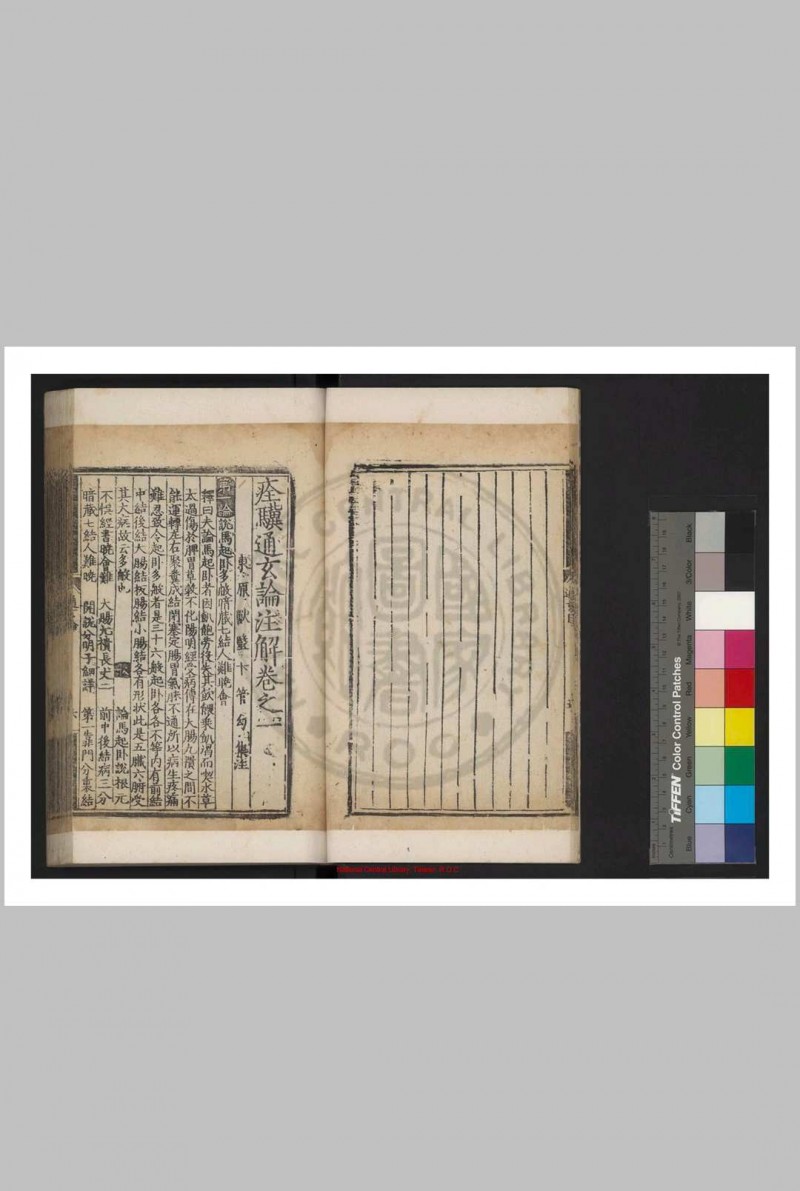 痊驥通玄論注解卷之一
東原獸醫卞管勾集注
論說馬起卧多般臍藏七結人難曉會
釋曰夫論馬起卧者因飢飽勞役失其飲餵乘飢渴而喫水草
太過傷於脾胃草穀不化陽明經受病傳在大腸九攢之間不
能運轉左右聚糞成結閉塞定腸胃氣脉不通所以病生疼痛
難忍致令起卧多般者是三十六般起卧各各不等內有前結
中結後結大腸結板腸結小腸結各有形狀此是五臟六腑受
其大病故云多般也
論馬起卧說根元
不悞經書曉會難 大腸九攢長丈二 前中後結病三分
暗藏七結人難曉 開說分明子細詳 第一靠門分裹結
TIFFEN Color Control Patches
Blue
Cyan
Green
Yellow
Red
Magenta
White
3/Color
Black
National Central Library, Taiwan, R.O.C